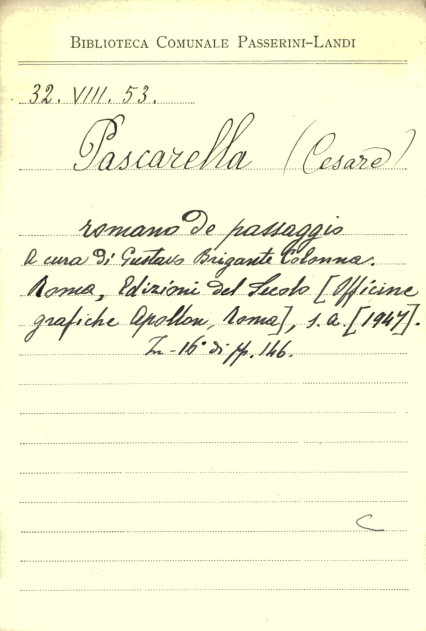 BIBLIOTECA COMUNALE PASSERINI-LANDI
32. VIII. 53.
Pascarella (Cesare)
romano de passaggio
A cura di Gustavo Brigante Colonna.
Roma, Edizioni del Secolo [Officine
grafiche Apollon, Roma], s. a. [1947].
In-16° di pp. 146.
C